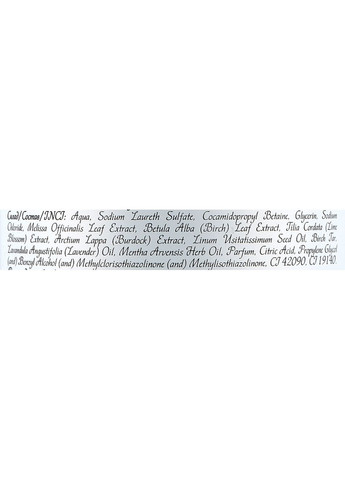 Cклад/Состав/INCI: Aqua, Sodium Laureth Sulfate, Cocamidopropyl Betaine, Glycerin, Sodium
Chloride, Melissa Officinalis Leaf Extract, Betula Alba (Birch) Leaf Extract, Tilia Cordata (Lime
Blossom) Extract, Arctium Lappa (Burdock) Extract, Linum Usitatissimum Seed Oil, Birch Tar,
Lavandula Augustifolia (Lavender) Oil, Mentha Arvensis Herb Oil, Parfum, Citric Acid, Propylene Glycol
(and) Benzyl Alcohol (and) Methylclorisothiazolinone (and) Methylisothiazolinone, CI 42090, CI 19140.